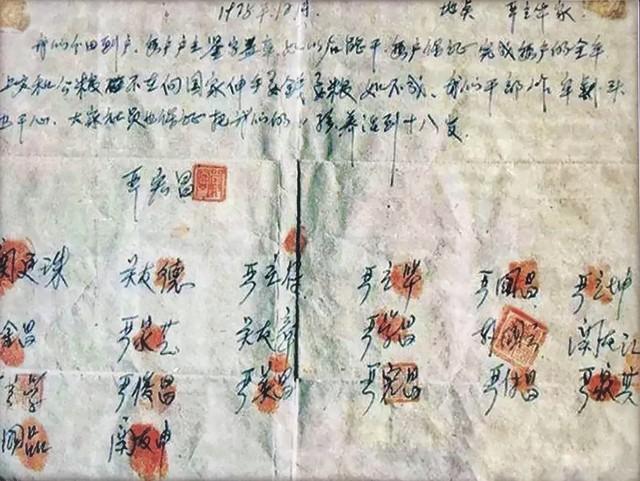 1978年12月. 地点 严立华家.
我们分田到户,每户户主签字盖章,如以后能干,每户保证完成每户的全年
上交和公粮 不在向国家伸手要钱要粮,如不成,我们干部作牢刹头
也干心,大家社员也保证把我们的小孩养活到十八岁.
严宏昌
关廷珠 关友德 严立符 严立华 严国昌 严立坤
金昌 严家芝 关友章 严学昌 韩国云 关友江
立学 严俊昌 严美昌 严宏昌 严付昌 严家其
国品 关友申